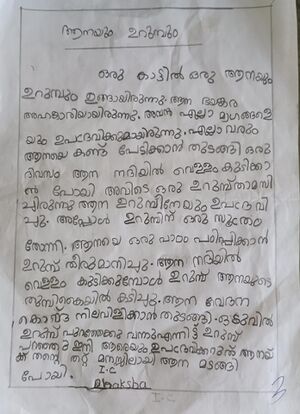 ആനയും ഉറുമ്പും
ഒരു കാട്ടിൽ ഒരു ആനയും
ഉറുമ്പും ഉണ്ടായിരുന്നു. ആന ഭയങ്കര
അഹങ്കാരിയായിരുന്നു. അവൻ എല്ലാ മൃഗങ്ങളെ
യും ഉപദ്രവിക്കുമായിരുന്നു. എല്ലാ വരും
ആനയെ കണ്ട് പേടിക്കാൻ തുടങ്ങി ഒരു
ദിവസം ആന നദിയിൽ വെള്ളം കുടിക്കാ
ൻ പോയി അവിടെ ഒരു ഉറുമ്പ് താമസി
ച്ചിരുന്നു ആന ഉറുമ്പിനേയും ഉപദ്രവി
ച്ചു. അപ്പോൾ ഉറുമ്പിന് ഒരു സൂത്രം
തോന്നി. ആനയെ ഒരു പാഠം പഠിപ്പിക്കാൻ
ഉറുമ്പ് തീരുമാനിച്ചു. ആന നദിയിൽ
വെള്ളം കുടിക്കുമ്പോൾ ഉറുമ്പ് ആനയുടെ
തുമ്പികൈയിൽ കടിച്ചു. ആന വേദന
കൊണ്ടു നിലവിളിക്കാൻ തുടങ്ങി. ഒടുവിൽ
ഉറുമ്പ് പുറത്തേക്കു വന്നു എന്നിട്ട് ഉറുമ്പ്
പറഞ്ഞു ഇനി ആരെയും ഉപദ്രവിക്കരുത് ആനയ്
ക്ക് തന്റെ തെറ്റ് മനസ്സിലായി ആന മടങ്ങി
പോയി.
I.C
I.C
3